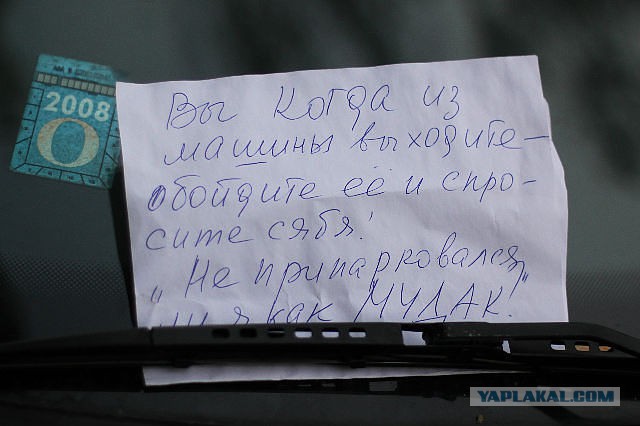 2008
О
Вы когда из
машины выходите-
обойдите её и спро-
сите сябя!
"Не припарковался
ли я как МУДАК!"
YAPLAKAL.COM